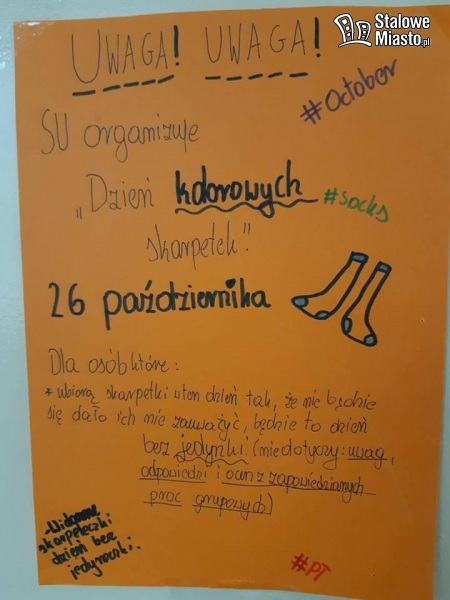 Stalowe
Miasto.pl
UWAGA! UWAGA!
#October
SU organizuje
„Dzień kolorowych
#socks
skarpetek"!
26 października
Dla osób które:
* ubiorą skarpetki w ten dzień tak, że nie będzie
się dało ich nie zauważyć, będzie to dzień
bez jedynki (nie dotyczy: uwag,
odpowiedzi i ocen z zapowiedzianych
prac grupowych)
-Widoczne
skarpeteczki
dzień bez
jedyneczki.
#PT